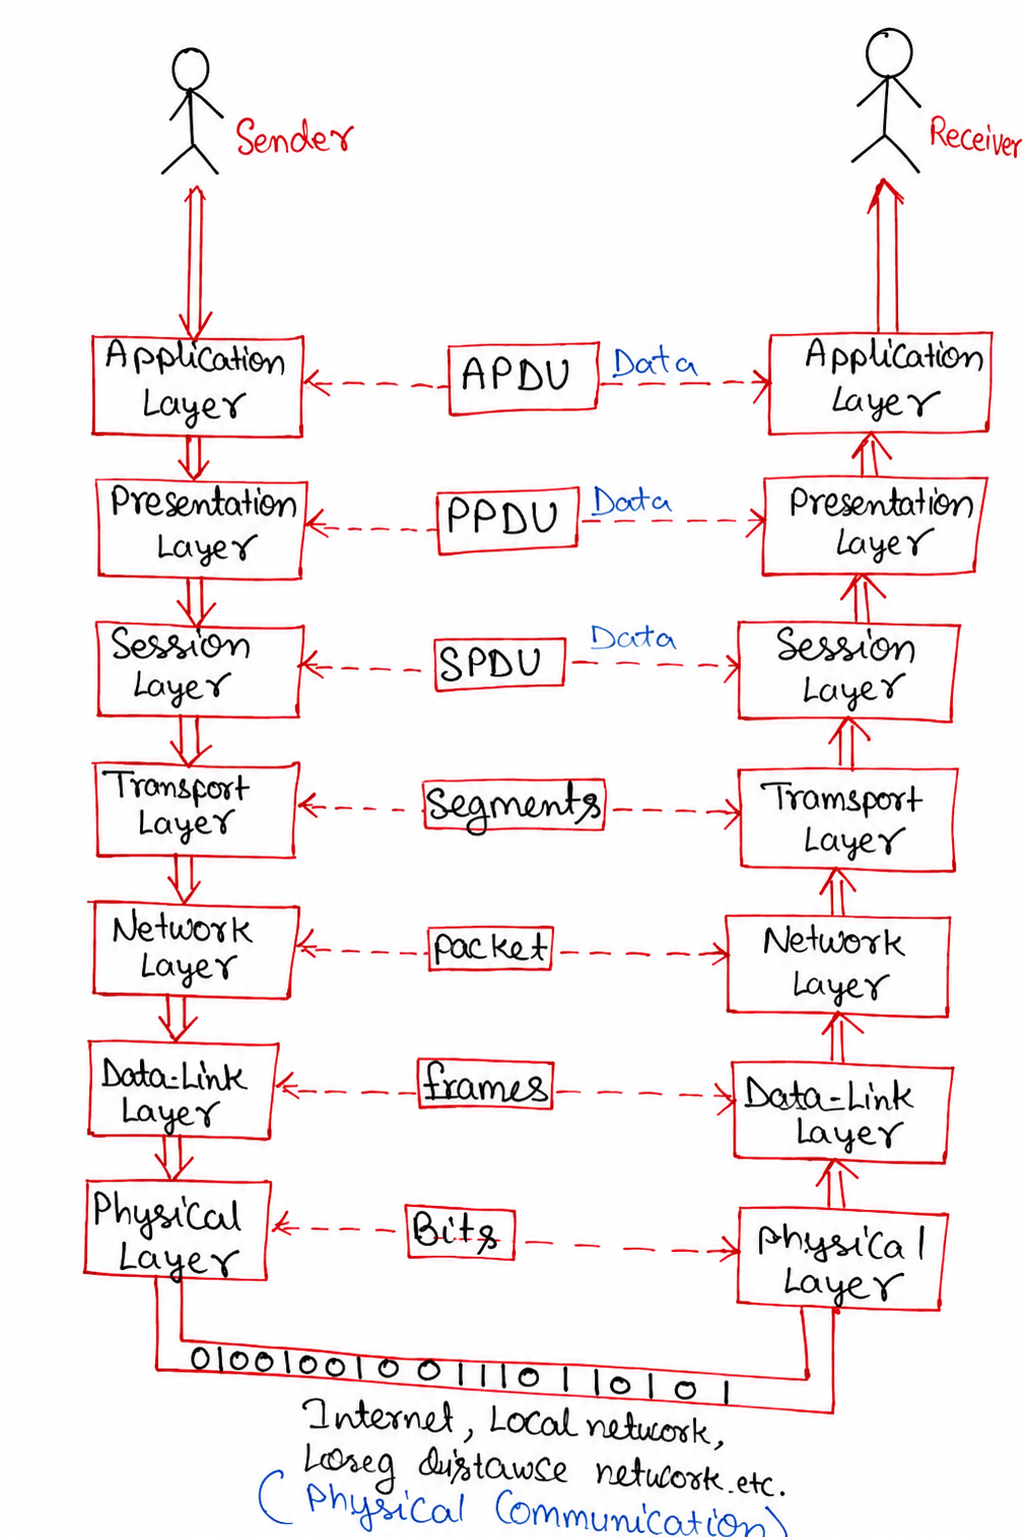 Sender
Receiver
Application
Layer
APDU
Data
Application
Layer
Presentation
Layer
PPDU
Data
Presentation
Layer
Session
Layer
SPDU
Data
Session
Layer
Transport
Layer
Segments
Tramsport
Layer
Network
Layer
packet
Network
Layer
Data-Link
Layer
frames
Data-Link
Layer
Physical
Layer
Bits
physical
Layer
0100100100111011010 1
Internet, Local network,
distawce network.etc.
(Physical Communication)